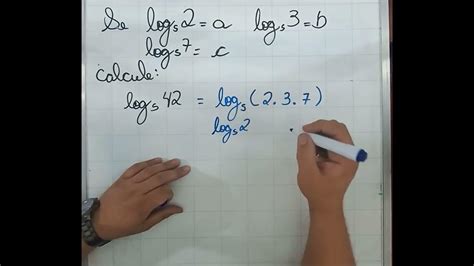 Se log₅2 = a   log₅3 = b
log₅7 = c
Calcule:
log₅42 = log₅(2.3.7)
log₅2